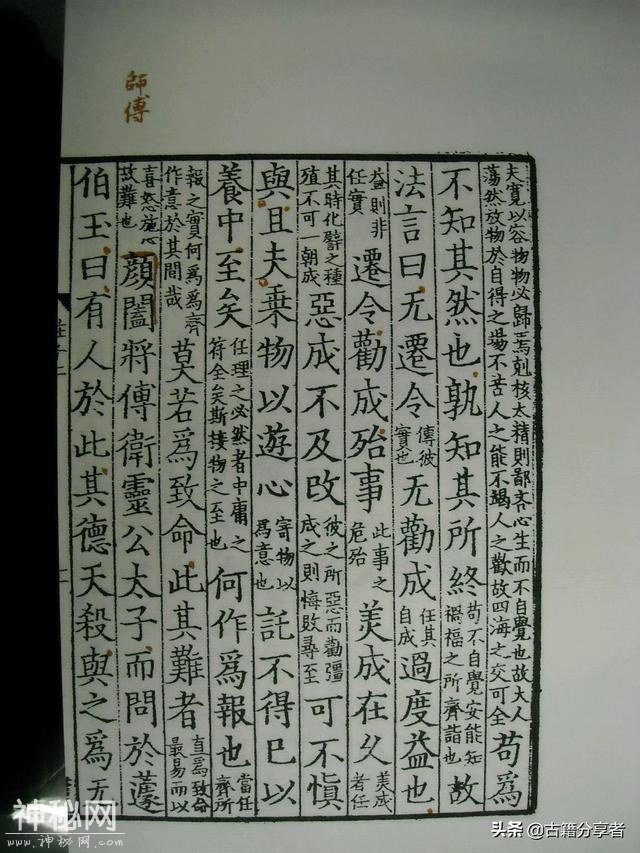 師傅
夫寬以容物物必歸焉剋核太精則鄙吝心生而不自覺也故大人蕩然放物於自得之場不苦人之能不竭人之歡故四海之交可全苟為
不知其然也孰知其所終苟不自覺安能知禍福之所齊詣也故
法言曰无遷令傳彼實也无勸成任其自成過度益也
益則非任實遷令勸成殆事此事之危殆美成在久美成者任
其時化譬之種殖不可一朝成惡成不及改彼之所惡而勸彊成之則悔敗尋至可不慎
與且夫乘物以遊心寄物以為意也託不得已以
養中至矣任理之必然者中庸之符全矣斯接物之至也何作為報也當任齊所
報之實何為為齊作意於其間哉莫若為致命此其難者直為致命最易而以
喜怒施心故難也顏闔將傅衛靈公太子而問於蘧
伯玉曰有人於此其德天殺與之為无
神秘网
www.神秘网.com
头条 @古籍分享者